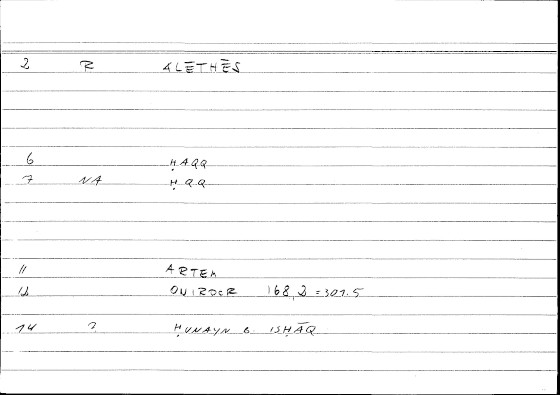 2 R ALĒTHĒS
6 ḤAQQ
7 NA ḤQQ
11 ARTEM
12 168,2=301.5
14 ? ḤUNAYN B. ISḤĀQ